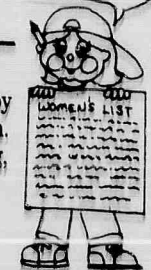 WOMEN'S LIST